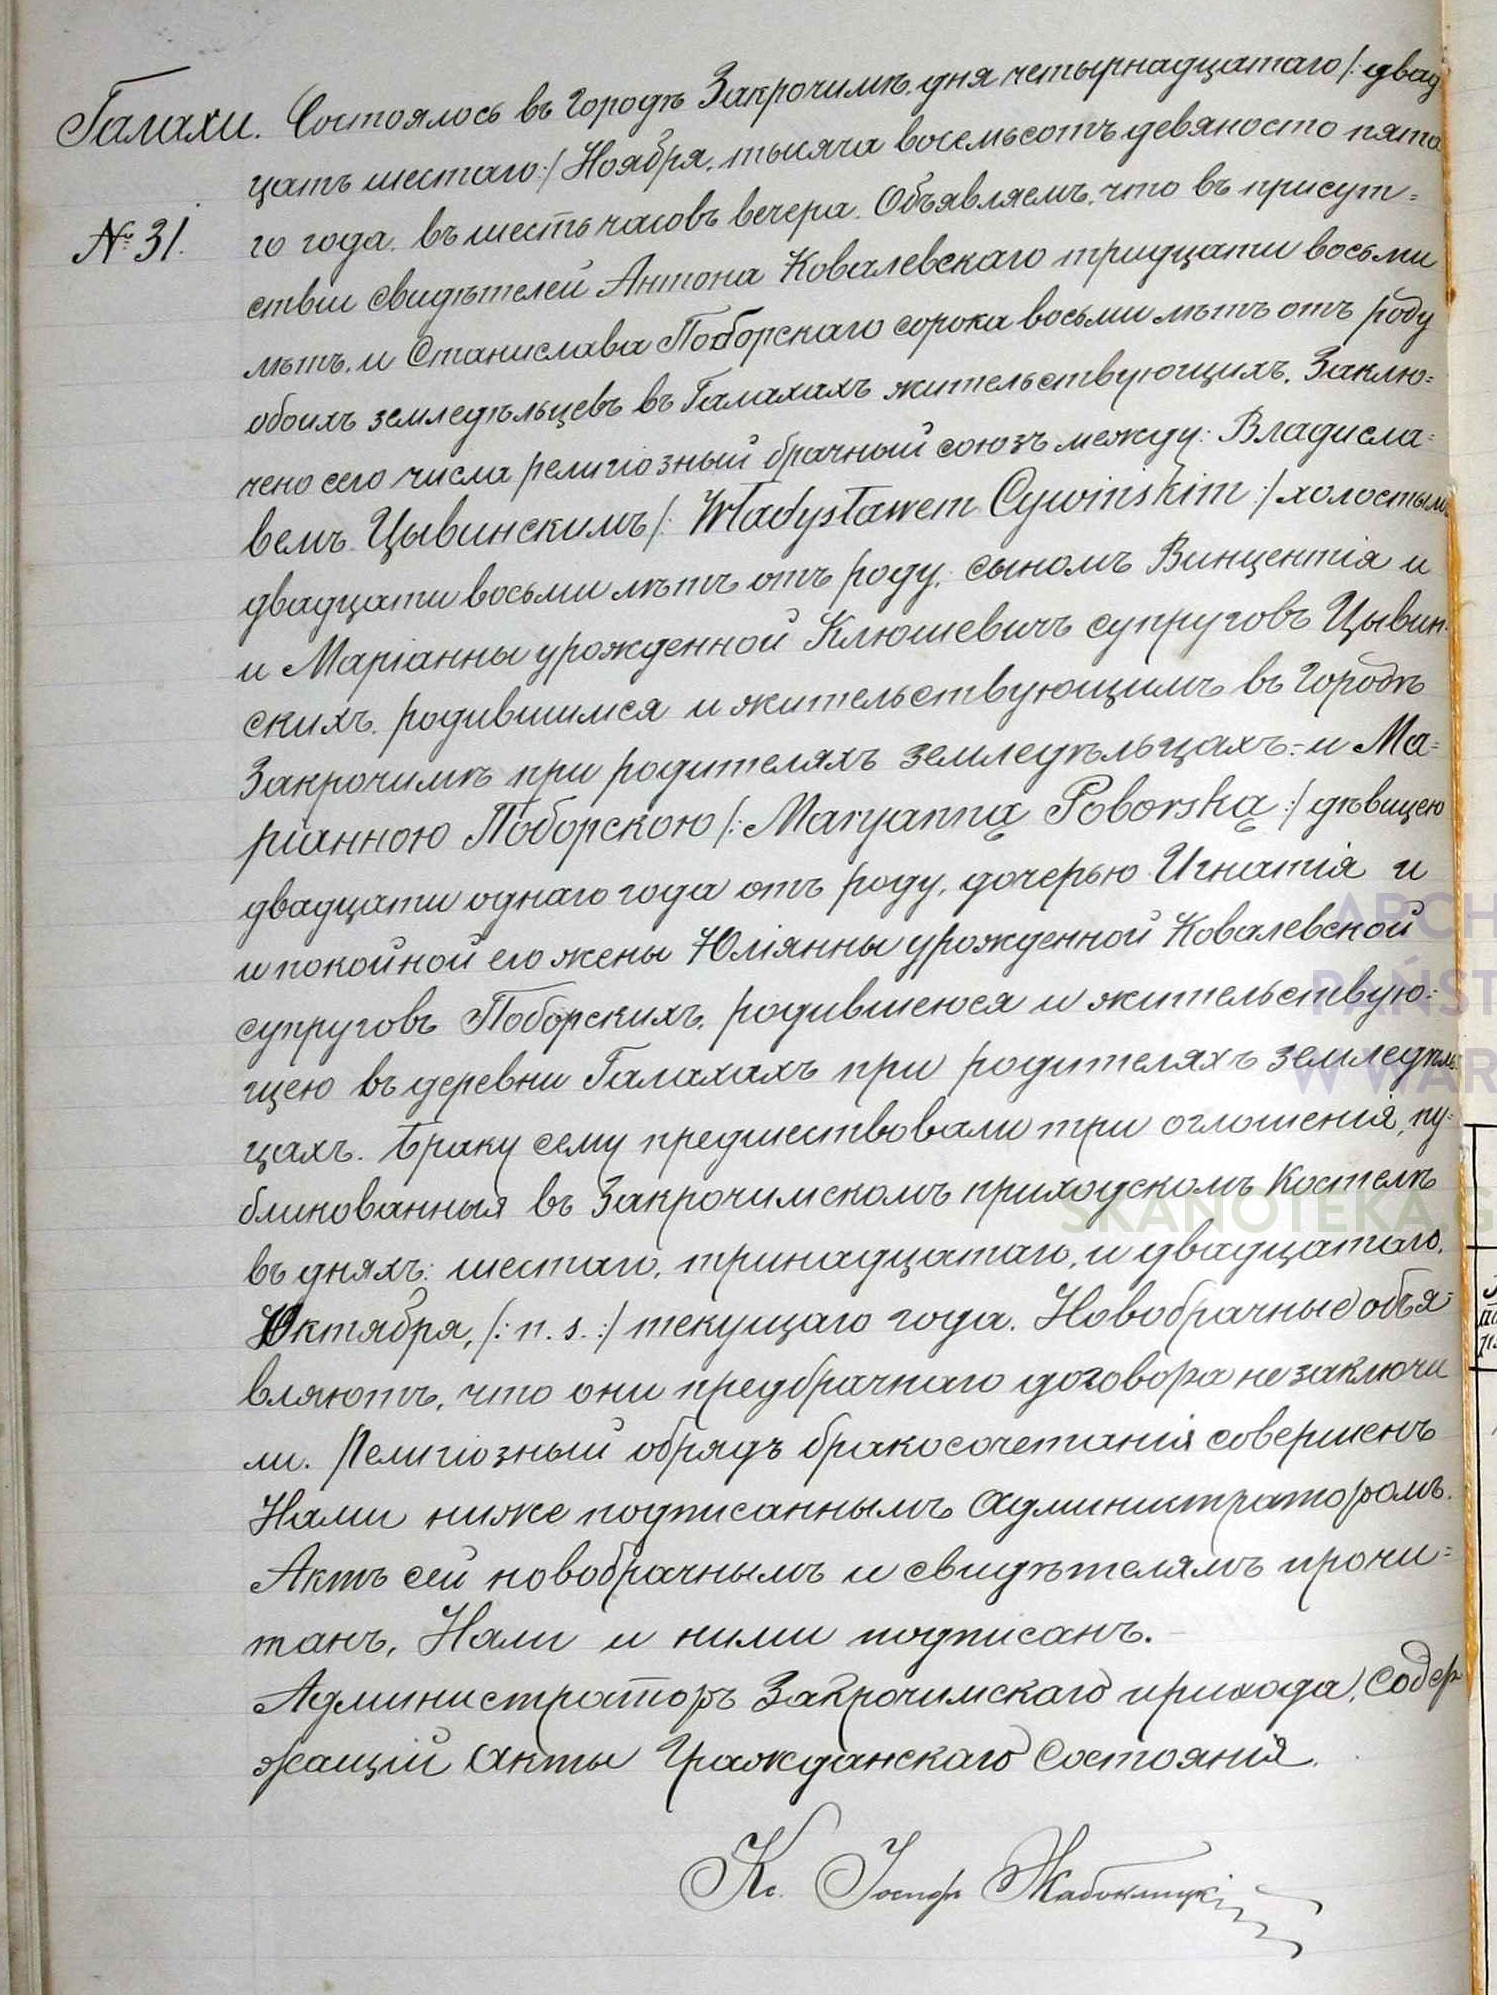 Галахи.
№ 31.
Состоялось въ городѣ Закрочимѣ, дня четырнадцатаго /: двад
цать шестаго :/ Ноября, тысяча восемьсотъ девяносто пята
го года, въ шесть часовъ вечера. Объявляемъ, что въ присут=
ствіи свидѣтелей Антона Ковалевскаго тридцати восьми
лѣтъ, и Станислава Поборскаго сорока восьми лѣтъ отъ роду
обоихъ земледѣльцевъ въ Галахахъ жительствующихъ. Заклю=
чено сего числа религіозный брачный союзъ между: Владисла=
вемъ Цывинскимъ /: Władysławem Cywińskim :/ холостымъ
двадцати восьми лѣтъ отъ роду, сыномъ Винцентія и
и Маріанны урожденной Клюшевичъ супруговъ Цывин-
скихъ, родившимся и жительствующимъ въ городѣ
Закрочимѣ при родителяхъ земледѣльцахъ - и Ма=
ріанною Поборскою /: Maryanną Poborską :/ дѣвицею
двадцати однаго года отъ роду, дочерью Игнатія и
и покойной его жены Юліянны урожденной Ковалевской
супруговъ Поборскихъ, родившеюся и жительствую=
щею въ деревни Галахахъ при родителяхъ земледѣль
цахъ. Браку сему предшествовали три оглошенія, пу=
бликованныя въ Закрочимскомъ приходскомъ Костелѣ
въ дняхъ: шестаго, тринадцатаго, и двадцатаго,
Октября, /: n. s. :/ текущаго года. Новобрачные объя=
вляютъ, что они предбрачнаго договора не заключи
ли. Религіозный обрядъ бракосочетанія совершенъ
Нами ниже подписаннымъ Администраторомъ.
Актъ сей новобрачнымъ и свидѣтелямъ прочи=
танъ, Нами и ними подписанъ.
Администраторъ Закрочимскаго прихода, Содер-
жащій Акты Гражданскаго Состоянія.
Кс. Іосифъ Жабоклицкі
ARCH
PAŃST
W WAR
SKANOTEKA.G